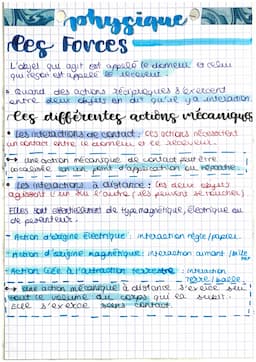 physique
Les Forces
L'objet qui agit est appelé le donneur et celui
qui reçoit est appelé le receveur.
Quand des actions réciproques s'exercent
entre deux objets on dit qu'il y a interaction
Les différentes actions mécaniques
Les interactions de contact : ces actions nécessitent
un contact entre le donneur et le receveur.
une action mécanique de contact peut être
localisée en un point d'application ou répartie.
Les interactions à distance : les deux objets
agissent l'un sur l'autre (ils peuvent se toucher).
Elles sont de type magnétique, électrique ou
de pesanteur.
Action d'origine électrique : interaction règle/papier.
Action d'origine magnétique : interaction aimant/bille
Action liée à l'attraction terrestre : interaction
terre/balle.
une action mécanique à distance s'exerce sur
tout le volume du corps qui la subit.
elle s'exerce sans contact.